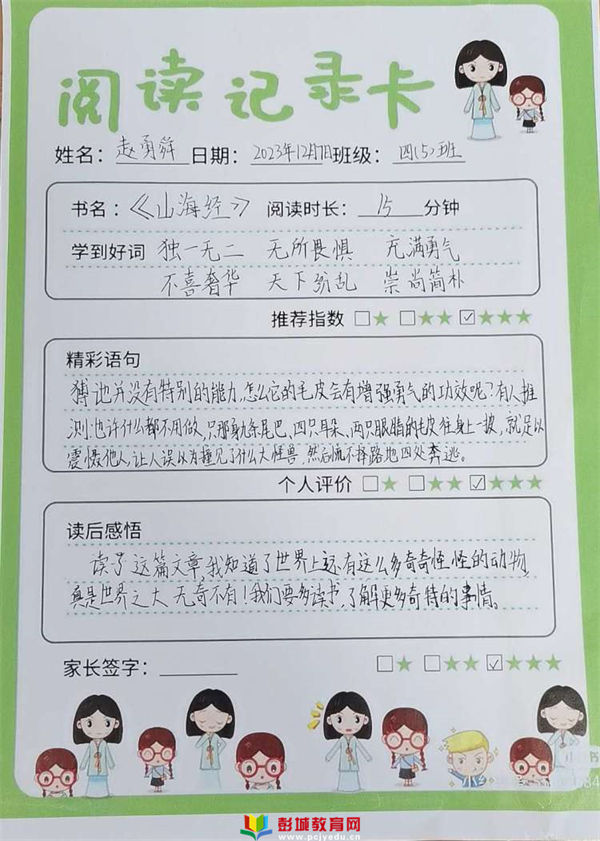 阅读记录卡
姓名：赵勇舜 日期：2023年12月7日 班级：四(5)班
书名：《山海经》 阅读时长：15分钟
学到好词 独一无二 无所畏惧 充满勇气
不喜奢华 天下纷乱 崇尚简朴
推荐指数 □★ □★★ ☑★★★
精彩语句
猼也并没有特别的能力,怎么它的毛皮会有增强勇气的功效呢?有人推
测:也许什么都不用做,只那身九条尾巴、四只耳朵、两只眼睛的毛皮往身上一披,就足以
震慑他人,让人误以为撞见了什么大怪兽,然后慌不择路地四处奔逃。
个人评价 □★ □★★ ☑★★★
读后感悟
读了这篇文章,我知道了世界上还有这么多奇奇怪怪的动物,
真是世界之大无奇不有!我们要多读书,了解更多奇特的事情。
家长签字：
□★ □★★ ☑★★★
彭城教育网
www.pcjyedu.cn